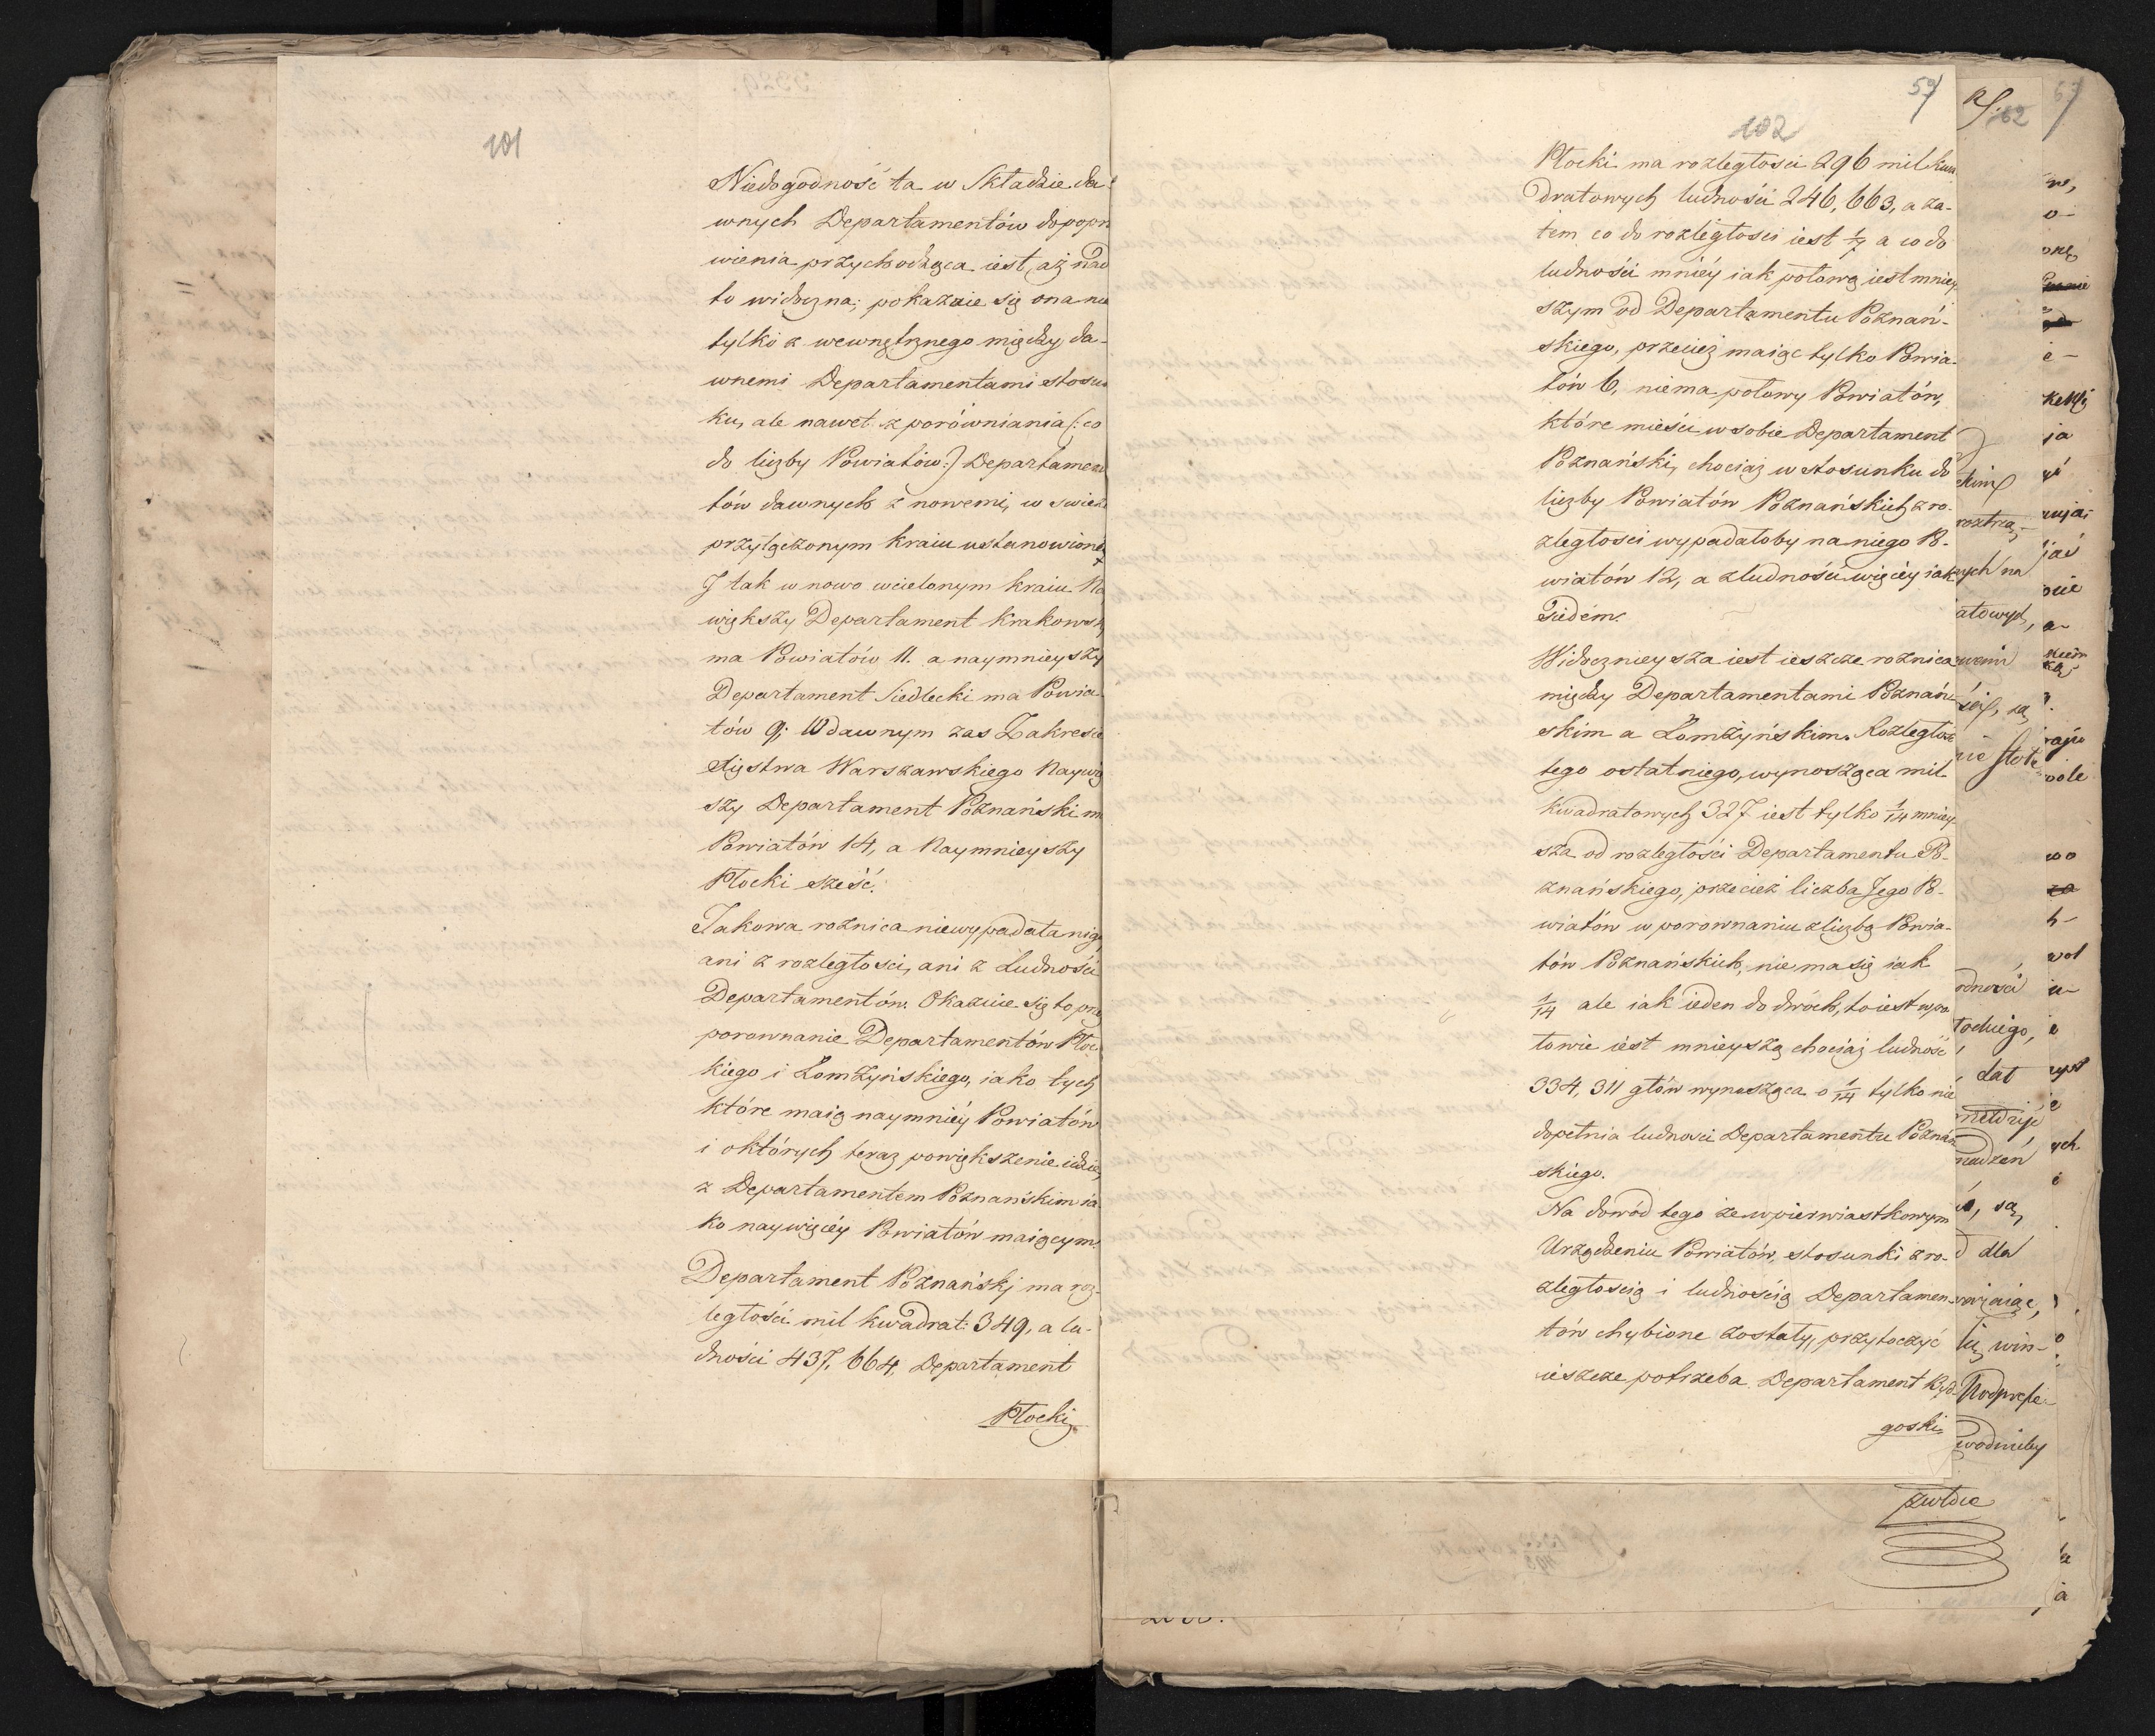 101
Niedogodność ta w Składzie da-
wnych Departamentów do popra
wienia przychodząca iest, aż nad
to widoczna; pokazuie się ona nie
tylko z wewnętrznego między da-
wnemi Departamentami stosun
ku, ale nawet z porównania (: co
do liczby Powiatów :) Departamen
tów dawnych z nowemi, w swież
przyłączonym kraiu ustanowione
I tak w nowo wcielonym kraiu Na
większy Departament Krakowsk
ma Powiatów 11. a naymnieyszy
Departament Siedlecki ma Powia
tów 9; W dawnym zas Zakresie
Xięstwa Warszawskiego Naywię
szy Departament Poznański m
Powiatów 14, a Naymnieyszy
Płocki sześć.
Takowa roznica niewypadała nig
ani z rozległosci, ani z Ludności
Departamentów. Okazuie się to prze
porownanie Departamentów Płoc
kiego i Łomżyńskiego, iako tych
które maią naymniéy Powiatów
i o których teraz powiększenie idzie,
z Departamentem Poznańskim ia
ko naywięcéy Powiatów maiącym.
Departament Poznański ma roz-
ległości mil kwadrat: 349, a lu-
dności 437,664, Departament
Płocki
59
102
Płocki ma rozległosci 296 mil kwa
dratowych ludności 246,663, a za-
tem co do rozległosci iest 1/7 a co do
ludności mniéy iak połową iest mniey
szym od Departamentu Poznań-
skiego, przecież maiąc tylko Powia-
tów 6, niema połowy Powiatów,
które mieści w sobie Departament
Poznański, chociaż w stosunku do
liczby Powiatów Poznańskich z ro-
zległosci wypadałoby na niego Po-
wiatów 12, a z ludności więcéy iak
Siedém.
Widocznieysza iest ieszcze roznica
między Departamentami Poznań-
skim a Łomżyńskim. Rozległość
tego ostatniego, wynosząca mil
kwadratowych 327 iest tylko 1/14 mniey-
sza od rozległości Departamentu Po-
znańskiego, przecież liczba Jego Po-
wiatów w porownaniu z liczbą Powia-
tów Poznańskich, nie ma się iak
1/14 ale iak ieden do dwóch, to iest w po
łowie iést mnieyszą chociaż ludność
334,311 głów wynosząca o 1/14 tylko nie
dopełnia ludnosci Departamentu Poznań
skiego.
Na dowód tego że w pierwiastkowym
Urządzeniu Powiatów, stosunki z ro-
zległoscią i ludnością Departamen-
tów chybione zostały, przytoczyć
ieszcze potrzeba Departament Byd-
goski
62